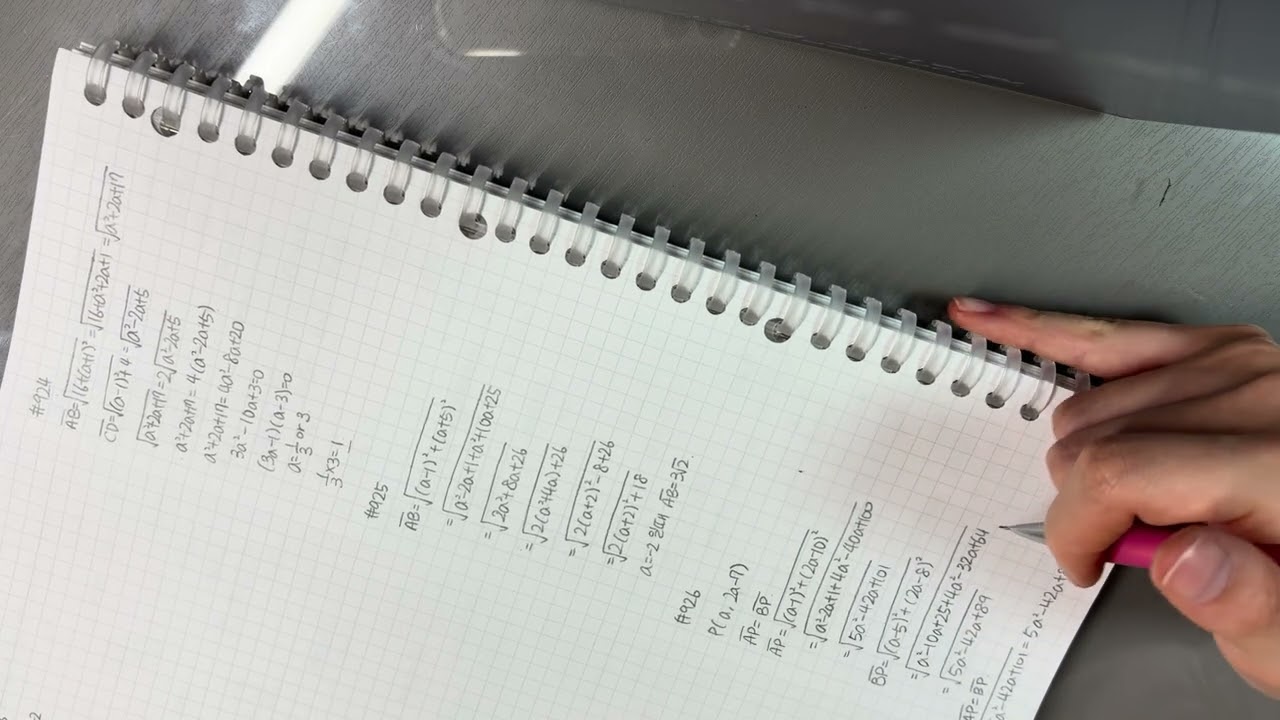 #924
AB=√16+(a+1)² = √16+a²+2a+1 = √a²+2a+17
CD=√(a-1)²+4 = √a²-2a+5
√a²+2a+17=2√a²-2a+5
a²+2a+17=4(a²-2a+5)
a²+2a+17=4a²-8a+20
3a²-10a+3=0
(3a-1)(a-3)=0
a=1/3 or 3
1/3×3=1
#925
AB=√(a-1)²+(a+5)²
=√a²-2a+1+a²+10a+25
=√2a²+8a+26
=√2(a²+4a)+26
=√2(a+2)²-8+26
=√2(a+2)²+18
a=-2 일때 AB=3√2.
#926
P(a, 2a-7)
AP=BP
AP=√(a-1)²+(2a-10)²
=√a²-2a+1+4a²-40a+100
=√5a²-42a+101
BP=√(a-5)²+(2a-8)²
=√a²-10a+25+4a²-32a+64
=√5a²-42a+89
AP=BP
a²-42a+101=5a²-42a+
2